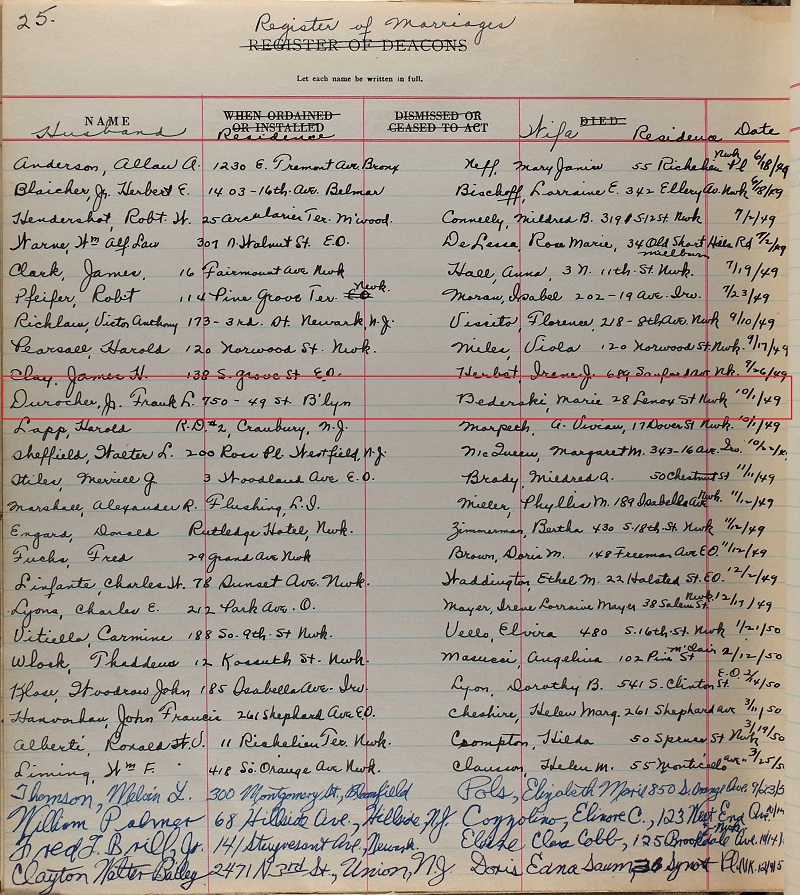 25.
Register of Marriages
REGISTER OF DEACONS
Let each name be written in full.
NAME WHEN ORDAINED OR INSTALLED DISMISSED OR CEASED TO ACT DIED
Husband Residence Wife Residence Date
Anderson, Allan A. 1230 E. Tremont Ave. Bronx Neff, Mary Janice 55 Richelieu Pl Nwk 6/18/49
Blaicher, Jr. Herbert E. 1403-16th Ave. Belmar Bischoff, Lorraine E. 342 Ellery Av. Nwk 6/18/49
Hendershot, Robt. W. 25 Arcularius Ter. M'wood. Connelly, Mildred B. 319 S 12 St. Nwk 7/2/49
Warne, Wm Alf. Law 307 N. Walnut St. E.O. De Lessa, Rose Marie, 34 Old Short Hills Rd Millburn 7/2/49
Clark, James, 16 Fairmount Ave Nwk Hall, Anna, 3 N. 11th St. Nwk. 7/19/49
Pfeifer, Robt 114 Pine Grove Ter. E.O. Newk. Moran, Isabel 202-19 Ave. Irv. 7/23/49
Richlan, Victor Anthony 173-3rd. St. Newark, N.J. Vissito, Florence, 218-8th Ave. Nwk 9/10/49
Pearsall, Harold 120 Norwood St. Nwk. Miles, Viola 120 Norwood St. Nwk. 9/17/49
Clay, James H. 138 S. Grove St E.O. Herbst, Irene J. 689 Nk. 9/26/49
Durocher, Jr. Frank L. 750-49 St. B'lyn Bederski, Marie 28 Lenox St Nwk 10/1/49
Lapp, Harold R.D.#2, Cranbury, N.J. Marpech, A. Vivian, 17 Dover St Nwk 10/1/49
Sheffield, Walter L. 200 Ross Pl. Westfield, N.J. McQueen, Margaret M. 343-16 Ave. Irv.
Stiles, Merrill G 3 Woodland Ave E.O. Brady, Mildred A. 50 Chestnut St 11/11/49
Marshall, Alexander R. Flushing, L.I. Miller, Phyllis M. 189 Isabella Ave Nwk. 11/12/49
Engard, Donald Rutledge Hotel, Nwk. Zimmerman, Bertha 430 S. 18th St. Nwk 11/12/49
Fuchs, Fred 29 Grand Ave Nwk Brown, Doris M. 148 Freeman Ave E.O. 11/12/49
L'infante, Charles W. 78 Sunset Ave. Nwk. Waddington, Ethel M. 22 Halsted St. E.O. 12/2/49
Lyons, Charles E. 212 Park Ave. O. Mayer, Irene Lorraine Mayer 38 Salem St. Nwk 12/17/49
Vitiello, Carmine 188 So. 9th St Nwk. Vello, Elvira 480 S. 16th St. Nwk 1/21/50
Wlock, Thaddeus 12 Kossuth St. Nwk. Masucci, Angelina 102 Pine St M'Clair 2/12/50
Klose, Woodrow John 185 Isabella Ave. Irv. Lyon, Dorothy B. 541 S. Clinton St. E.O.
Hanrahan, John Francis 261 Shephard Ave E.O. Cheshire, Helen Marg. 261 Shephard Ave 3/11/50
Alberti, Ronald W.J. 11 Richelieu Ter. Nwk. Crompton, Hilda 50 Spruce St Nwk 3/19/50
Liming, Wm F. 418 So. Orange Ave Nwk. Clauson, Helen M. 55 Monticello Ave 3/25/50
Thomson, Melvin L. 300 Montgomery St., Bloomfield Pols, Elizabeth Marie 850 S. Orange Ave.
William Palmer 68 Hillside Ave., Hillside N.J. Cozzolino, Elinore C., 123 West End Ave.
Fred J. Brill, Jr. 141 Stuyvesant Ave., Newark. Elaine Clara Cobb, 125 Brookdale Ave.
Clayton Walter Bailey 2471 N 3rd St., Union, N.J. Doris Edna Saum, 36 Synot Pl. NK.